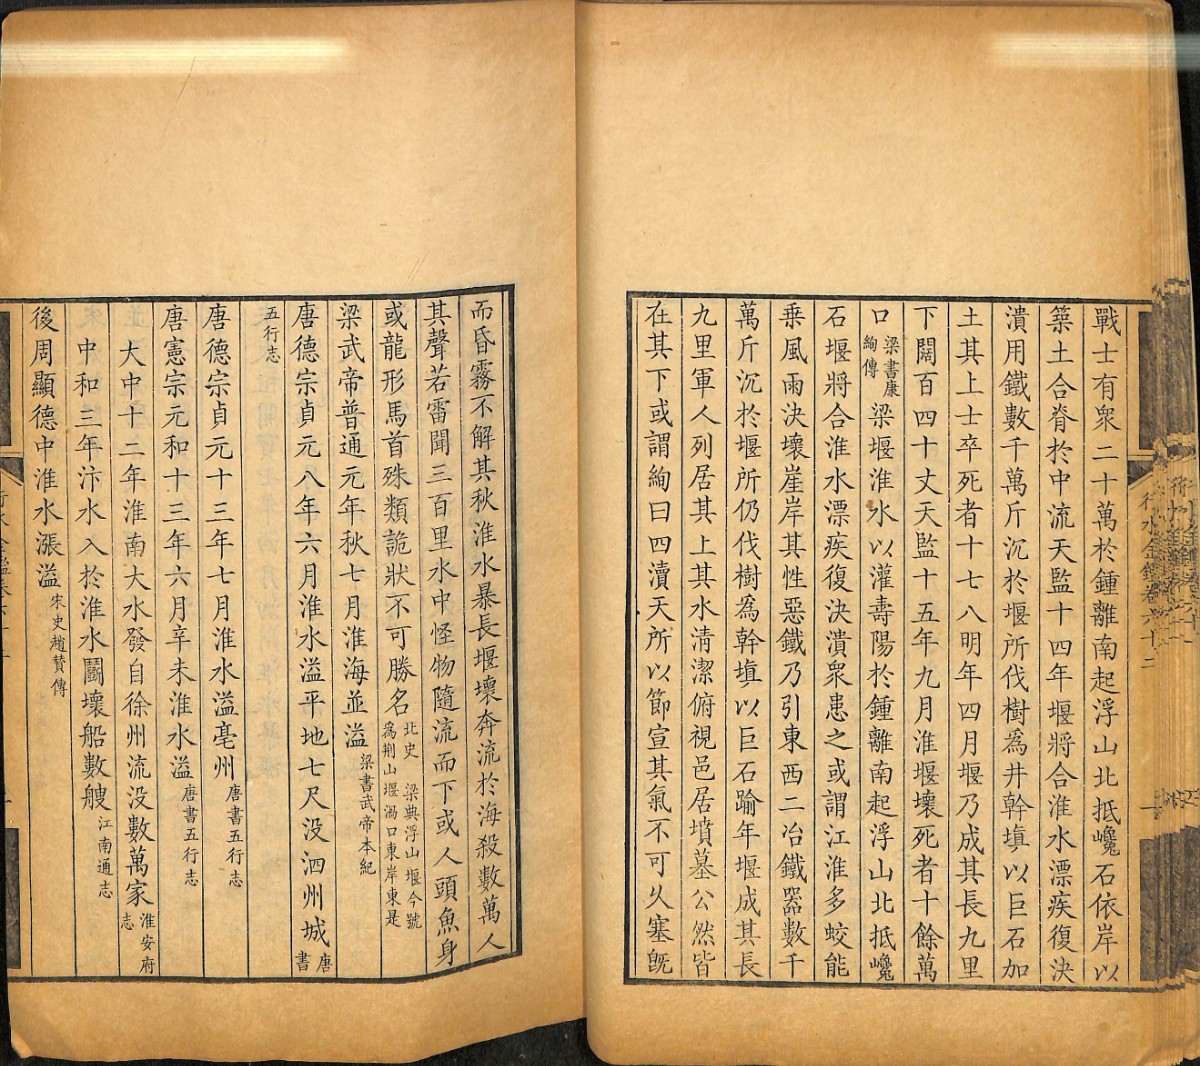 戰士有衆二十萬於鍾離南起浮山北抵巉石依岸以
築土合脊於中流天監十四年堰將合淮水漂疾復決
潰用鐵數千萬斤沉於堰所伐樹爲井幹塡以巨石加
土其上士卒死者十七八明年四月堰乃成其長九里
下闊百四十丈天監十五年九月淮堰壞死者十餘萬
口梁書康絢傳梁堰淮水以灌壽陽於鍾離南起浮山北抵巉
石堰將合淮水漂疾復決潰衆患之或謂江淮多蛟能
乘風雨決壞崖岸其性惡鐵乃引東西二冶鐵器數千
萬斤沉於堰所仍伐樹爲幹塡以巨石踰年堰成其長
九里軍人列居其上其水清潔俯視邑居墳墓公然皆
在其下或謂絢曰四瀆天所以節宣其氣不可久塞旣
行水金鑑卷六十二
而昏霧不解其秋淮水暴長堰壞奔流於海殺數萬人
其聲若雷聞三百里水中怪物隨流而下或人頭魚身
或龍形馬首殊類詭狀不可勝名北史 梁典浮山堰今號爲荆山堰渦口東岸東是
梁武帝普通元年秋七月淮海並溢梁書武帝本紀
唐德宗貞元八年六月淮水溢平地七尺没泗州城唐書
五行志
唐德宗貞元十三年七月淮水溢亳州唐書五行志
唐憲宗元和十三年六月辛未淮水溢唐書五行志
大中十二年淮南大水發自徐州流没數萬家淮安府志
中和三年汴水入於淮水鬭壞船數艘江南通志
後周顯德中淮水漲溢宋史趙贊傳